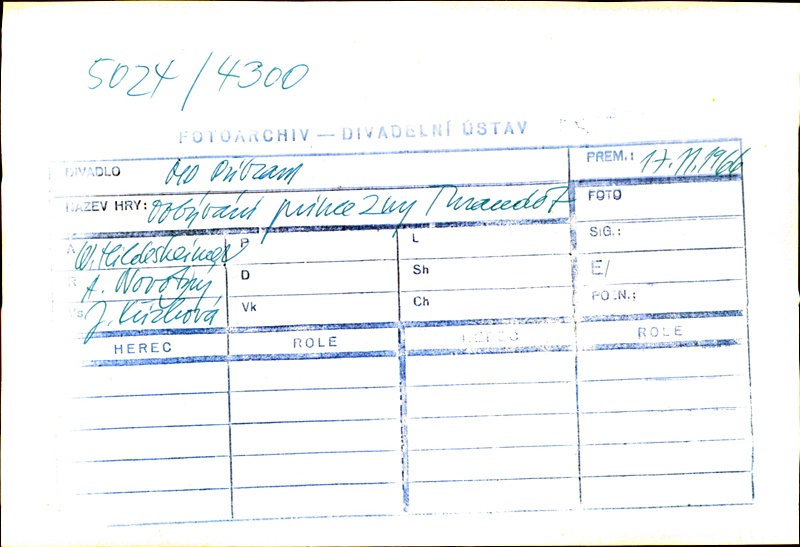 5024/4300
FOTOARCHIV — DIVADELNÍ ÚSTAV
DIVADLO Příbram PREM.: 17.11.1966
NÁZEV HRY: Dobývání princezny Turandot FOTO
A W. Hildesheimer P L SIG.:
R A. Novotný D Sh E/
Vs J. Vk Ch POZN.:
HEREC ROLE HEREC ROLE